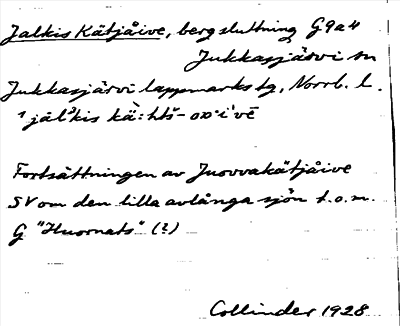 Jalkis Kätjåive, bergsluttning G9a4
Jukkasjärvi sn
Jukkasjärvi lappmarks tg, Norrb. l.
Fortsättningen av Juovvakätjåive
SV om den lilla avlånga sjön t.o.m.
G "Huornats" (?)
Collinder 1928